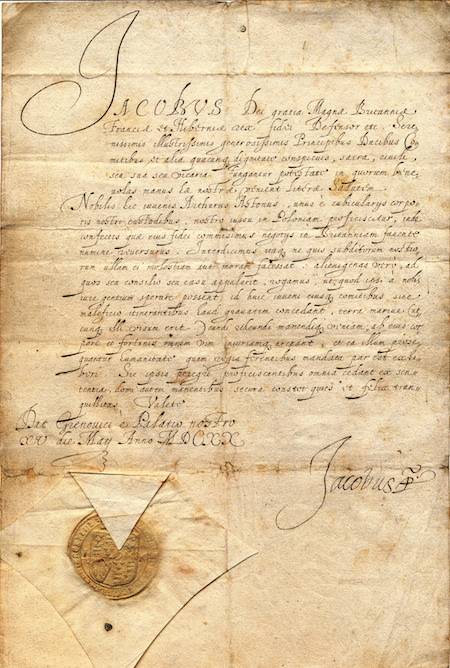 JACOBVS Dei gratia Magnæ Britanniæ
Franciæ et Hiberniæ rex fidei Defensor etc. Sere
nissimis Illustrissimis generosissimis Principibus Ducibus Co
mitibus et alia quacunq dignitate conspicuis, sacra, civili
sea sua seu vicaria fungantur potestate in quorum bene
volas manus hæ nostræ venient literæ Salutem
Nobilis hic iuvenis Arthurus Astonus, unus e cubicularys corpo
ris nostri custodibus, nostro iussu in Poloniam proficiscitur, inde
confectis quæ eius fidei commisimus negotys in Britanniam favente
numine reversurus. Interdicimus itaq ne quis subditorum nostro
rum ullam ei molestiam aut moram facessat: alienigenas vero, ad
quos seu consilio seu casu appulerit, rogamus, ut quod ipsi a nobis
iure gentium sperare possent, id huic iuveni eiusq comitibus sine
maleficio itinerantibus haud gravatim concedant, terra mariue ut
cunq illi visum erit vehendi manendiq veniam, ab eius cor
pore et fortunis omnem vim iniuriamq arceant, et ea illum prose
quantur humanitate, quam
Sic
tentia, domi autem manentibus secura constet quies et felix tran
quillitas. Valete.
Dat Grenovici e Palatio nostro
XV die May Anno MDCXX
Jacobus R